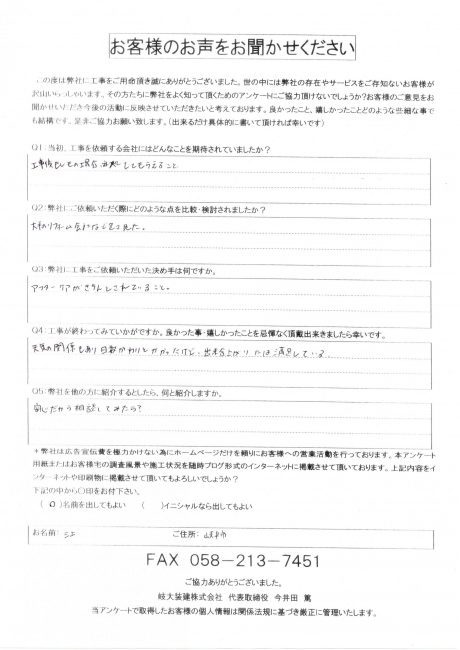 お客様のお声をお聞かせください
この度は弊社に工事をご用命頂き誠にありがとうございました。世の中には弊社の存在やサービスをご存知ないお客様が
沢山いらっしゃいます。その方たちに弊社をよく知って頂くためのアンケートにご協力頂けないでしょうか?お客様のご意見をお
聞かせいただき今後の活動に反映させていただきたいと考えております。良かったこと、嬉しかったことどのような些細な事で
も結構です。是非ご協力お願い致します。(出来るだけ具体的に書いて頂ければ幸いです)
Q1:当初、工事を依頼する会社にはどんなことを期待されていましたか?
工事後もしもの場合、対処してもらえること
Q2:弊社にご依頼いただく際にどのような点を比較・検討されましたか?
Q3:弊社に工事をご依頼いただいた決め手は何ですか。
アフターケアがきちんとされていること。
Q4:工事が終わってみていかがですか。良かった事・嬉しかったことを忌憚なく頂戴出来きましたら幸いです。
天気の関係もあり日数がかなりかかったけど、出来上がりには満足している
Q5:弊社を他の方に紹介するとしたら、何と紹介しますか。
安心だから相談してみたら?
*弊社は広告宣伝費を極力かけない為にホームページだけを頼りにお客様への営業活動を行っております。本アンケート
用紙またはお客様宅の調査風景や施工状況を随時ブログ形式のインターネットに掲載させて頂いております。上記内容をイ
ンターネットや印刷物に掲載させて頂いてもよろしいでしょうか?
下記の中から〇印をお付下さい。
(〇)名前を出してもよい ( )イニシャルなら出してもよい
お名前: ご住所: 岐阜市
FAX 058-213-7451
ご協力ありがとうございました。
岐大装建株式会社 代表取締役 今井田 篤
当アンケートで取得したお客様の個人情報は関係法規に基づき厳正に管理いたします。